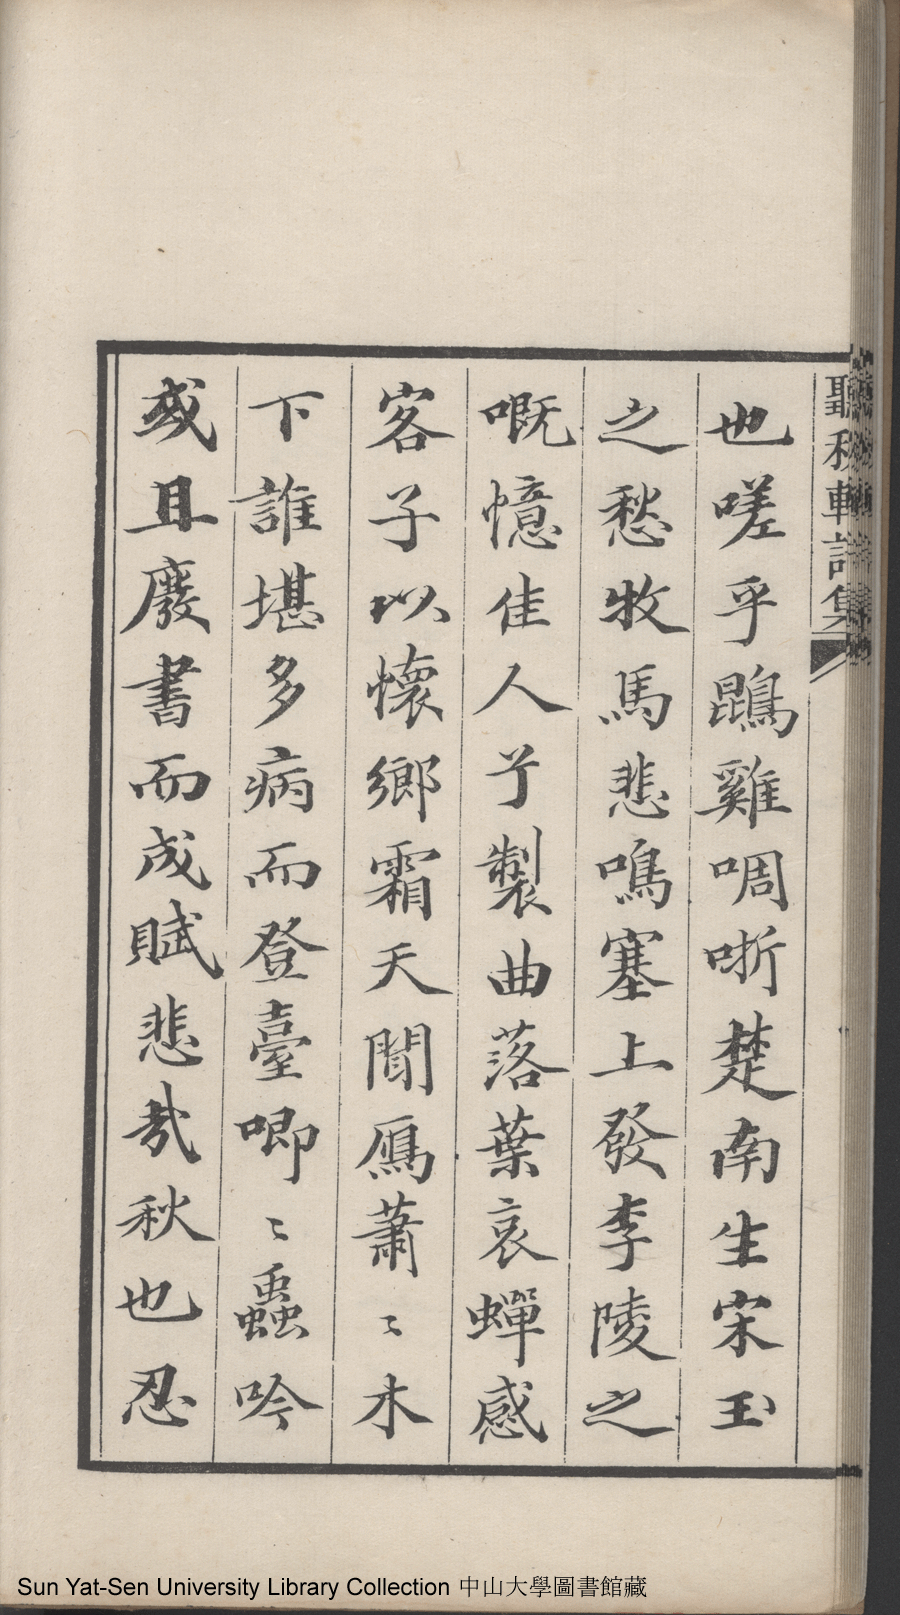 聽秋軒詩集
也嗟乎鵾雞啁哳楚南生宋玉
之愁牧馬悲鳴塞上發李陵之
嘅憶佳人兮製曲落葉哀蟬感
客子以懷鄉霜天聞鴈蕭〻木
下誰堪多病而登臺唧〻蟲吟
或且廢書而成賦悲哉秋也忍
Sun Yat-Sen University Library Collection 中山大學圖書館藏